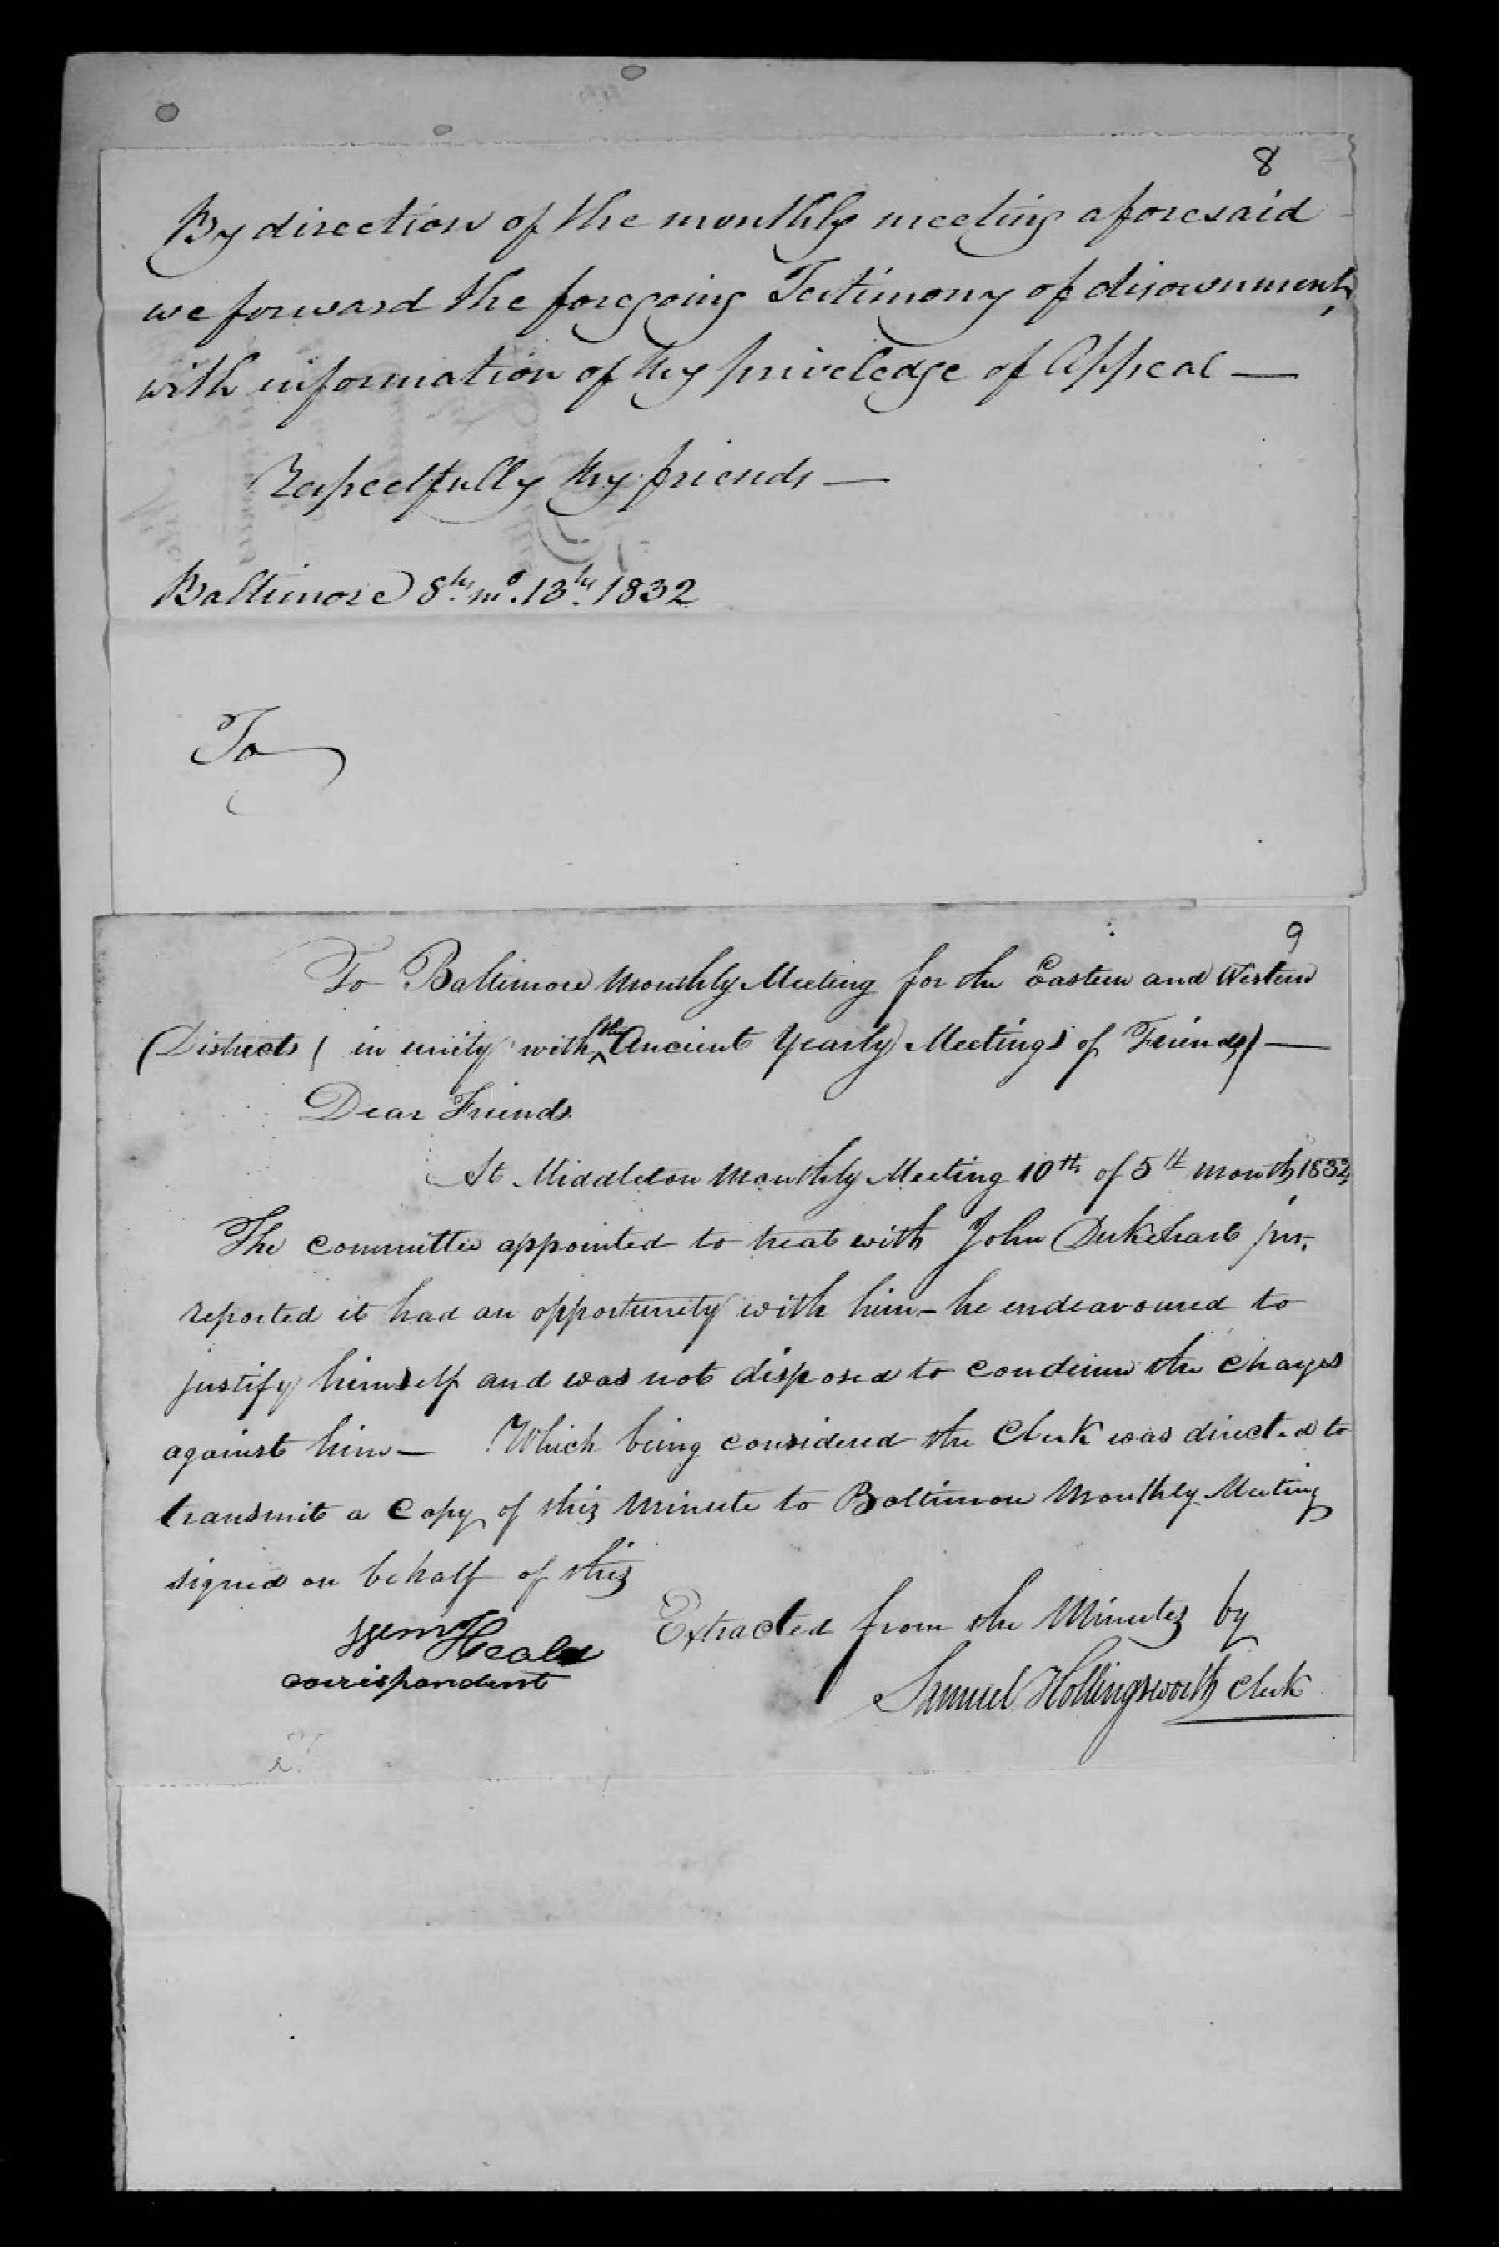 8
By direction of the monthly meeting aforesaid
we forward the foregoing Testimony of disownment,
with information of thy priveledge of Appeal —
Respectfully thy friends —
Baltimore 8th. mo. 13th. 1832
To
9
To Baltimore Monthly Meeting for the Eastern and Western
Districts ( in unity with the Ancient Yearly Meetings of Friends) —
Dear Friends
At Middleton Monthly Meeting 10th of 5th month 1832,
The committee appointed to treat with John Dukehart jnr.
reported it had an opportunity with him – he endeavoured to
justify himself and was not disposed to condemn the charges
against him — Which being considered the Clerk was directed to
transmit a Copy of this Minute to Baltimore Monthly Meeting
signed on behalf of this
Extracted from the Minutes by
Heald
correspondent
Samuel Hollingsworth Clerk